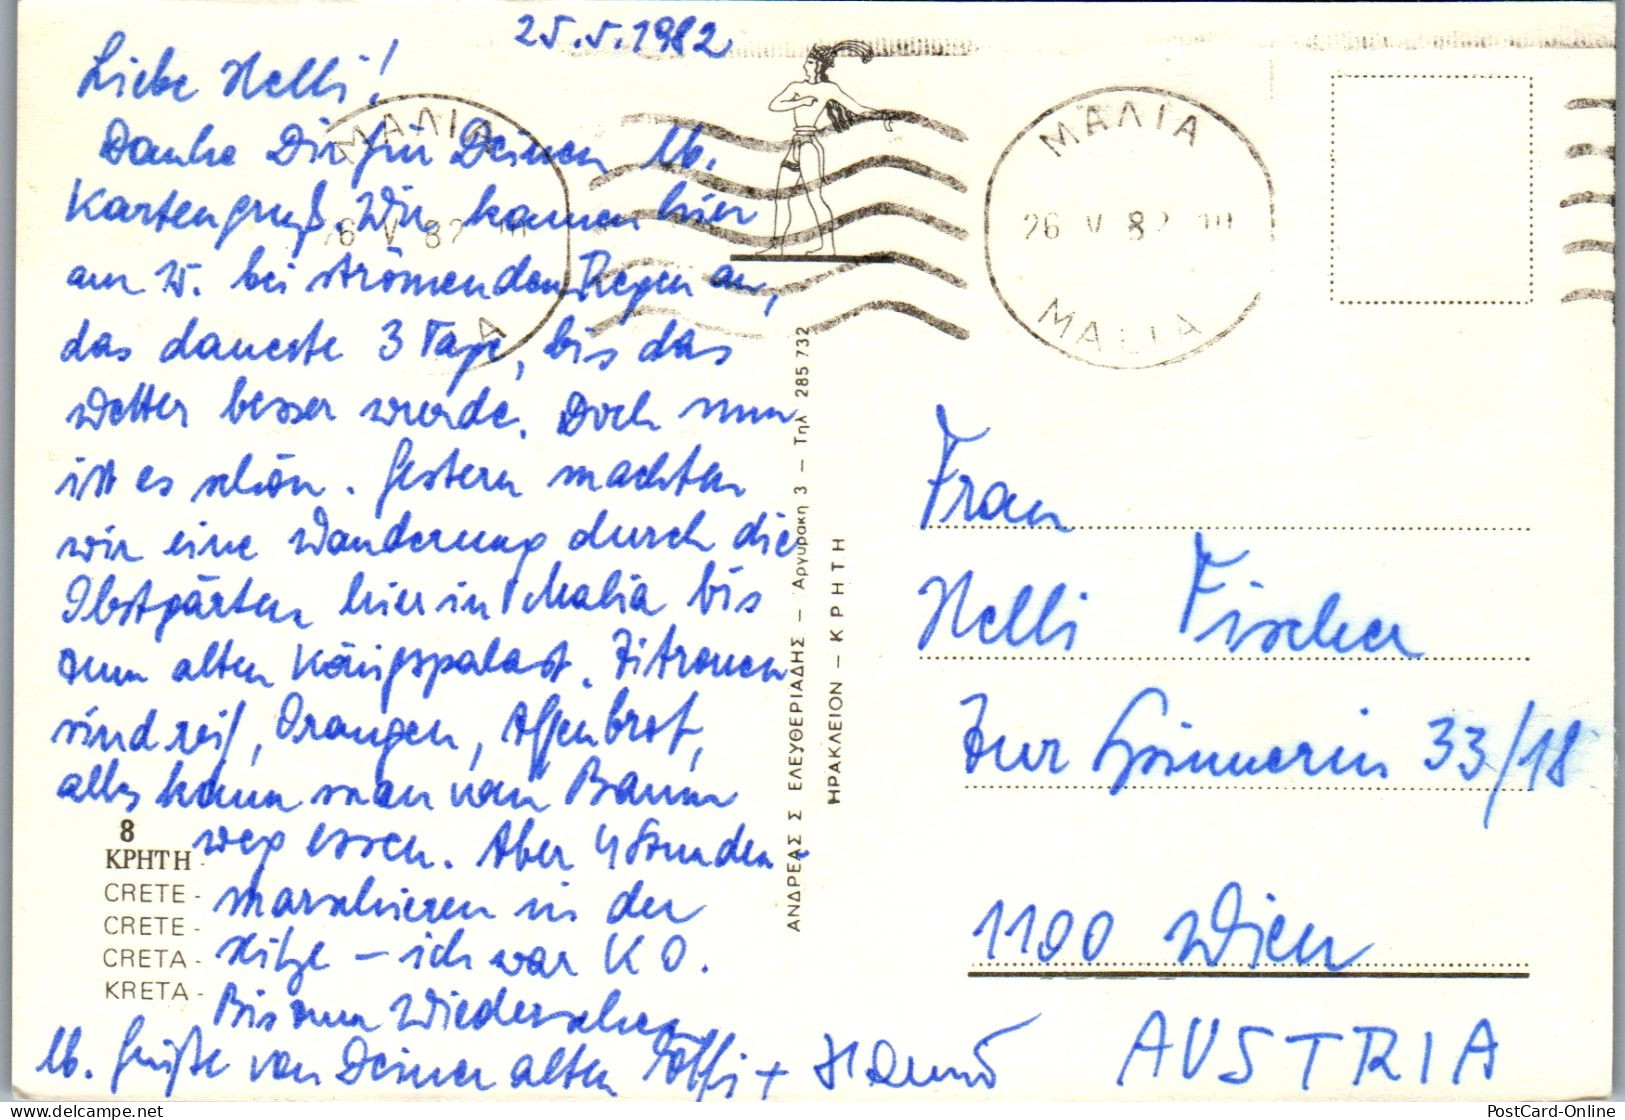 25.5.1982
Liebe Nelli!
Danke Dir für Deinen lb.
Kartengruß. Wir kamen hier
am 15. bei strömenden Regen an,
das dauerte 3 Tage, bis das
Wetter besser wurde. Doch nun
ist es schön. Gestern machten
wir eine Wanderung durch die
Obstgärten hier in Malia bis
zum alten Königspalast. Zitronen
sind reif, Orangen, Affenbrot,
alles kann man von Baum
weg essen. Aber 4 Stunden
marschieren in der
Hitze – ich war K O.
Bis zum Wiedersehen
lb. Grüße von Deiner alten
8
ΚΡΗΤΗ -
CRETE -
CRETE -
CRETA -
KRETA -
ΑΝΔΡΕΑΣ Σ ΕΛΕΥΘΕΡΙΑΔΗΣ – Αργυράκη 3 – Τηλ 285 732
ΗΡΑΚΛΕΙΟΝ – ΚΡΗΤΗ
ΜΑΛΙΑ
26 V 82
ΜΑΛΙΑ
26 V 82
MALIA
Frau
Nelli Fischer
Zur Spinnerin 33/18
1100 Wien
AUSTRIA
PostCard-Online